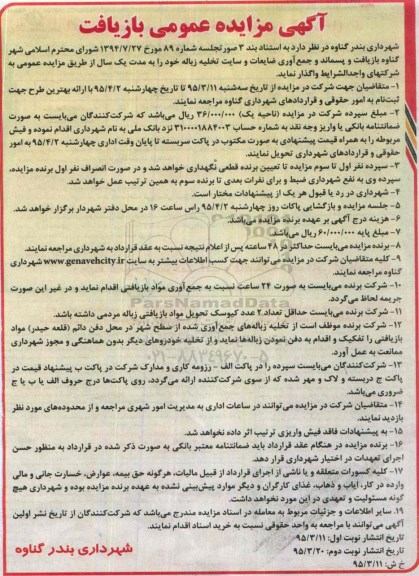 آگهی مزایده عمومی بازیافت
شهرداری بندر گناوه در نظر دارد به استناد بند ۳ صورتجلسه شماره ۸۹ مورخ ۱۳۹۴/۷/۲۷ شورای محترم اسلامی شهر
گناوه بازیافت و پسماند و جمع‌آوری ضایعات و سایت تخلیه زباله خود را به مدت یک سال از طریق مزایده عمومی به
شرکتهای واجدالشرایط واگذار نماید.
۱- متقاضیان جهت شرکت در مزایده از تاریخ سه‌شنبه ۹۵/۳/۱۱ تا تاریخ چهارشنبه ۹۵/۴/۲ با ارائه بهترین طرح جهت
ثبت‌نام به امور حقوقی و قراردادهای شهرداری گناوه مراجعه نمایند.
۲- مبلغ سپرده شرکت در مزایده (ناحیه یک) ۳۶/۰۰۰/۰۰۰ ریال می‌باشد که شرکت‌کنندگان می‌بایست به صورت
ضمانتنامه بانکی یا واریز وجه نقد به شماره حساب ۳۱۰۰۰۰۱۸۸۴۰۰۳ نزد بانک ملی به نام شهرداری اقدام نموده و فیش
مربوطه را به همراه قیمت پیشنهادی به صورت مکتوب در پاکت سربسته تا پایان وقت اداری چهارشنبه ۹۵/۴/۲ به امور
حقوقی و قراردادهای شهرداری تحویل نمایند.
۳- سپرده نفر اول تا سوم مزایده تا تعیین برنده قطعی نگهداری خواهد شد و در صورت انصراف نفر اول برنده مزایده،
سپرده وی به نفع شهرداری ضبط و برای نفرات بعدی تا برنده سوم به همین ترتیب عمل خواهد شد.
۴- شهرداری در رد یا قبول هر یک از پیشنهادات مختار است.
۵- جلسه مزایده و بازگشایی پاکات روز چهارشنبه ۹۵/۴/۲ راس ساعت ۱۶ در محل دفتر شهردار برگزار خواهد شد.
۶- هزینه درج آگهی بر عهده برنده مزایده می‌باشد.
۷- مبلغ پایه ۶۰/۰۰۰/۰۰۰ ریال می‌باشد.
۸- برنده مزایده می‌بایست حداکثر در ۴۸ ساعته پس از اعلام نتیجه نسبت به عقد قرارداد به شهرداری مراجعه نمایند.
۹- کلیه متقاضیان شرکت در مزایده می‌توانند جهت کسب اطلاعات بیشتر به سایت www.genavehcity.ir شهرداری
گناوه مراجعه نمایند.
۱۰- شرکت برنده می‌بایست به صورت ۲۴ ساعت نسبت به جمع‌آوری مواد بازیافتی اقدام نماید و در غیر این صورت
جریمه لحاظ می‌گردد.
۱۱- شرکت برنده می‌بایست حداقل تعداد ۲ عدد کیوسک تحویل مواد بازیافتی زباله مردمی داشته باشد.
۱۲- شرکت برنده موظف است از تخلیه زباله‌های جمع‌آوری شده از سطح شهر در محل دفن دائم (قلعه حیدر) مواد
بازیافتی را تفکیک و اقدام به دفن نمودن زباله‌ها نماید و از تخلیه خودروهای دیگر بدون هماهنگی و مجوز شهرداری
ممانعت به عمل آورد.
۱۳- شرکت‌کنندگان می‌بایست سپرده را در پاکت الف - رزومه کاری و مدارک شرکت در پاکت ب پیشنهاد قیمت در
پاکت ج دربسته و لاک و مهر شده که از سوی شرکت‌کننده ارائه می‌گردد، روی پاکت‌ها درج حروف الف یا ب یا ج
ضروری می‌باشد.
۱۴- متقاضیان شرکت در مزایده می‌توانند در ساعات اداری به مدیریت امور شهری مراجعه و از محدوده‌های مورد نظر
بازدید نمایند.
۱۵- به پیشنهادات فاقد فیش واریزی ترتیب اثر داده نخواهد شد.
۱۶- برنده مزایده در هنگام عقد قرارداد باید ضمانتنامه معتبر بانکی به صورت ذکر شده در قرارداد به منظور حسن
اجرای تعهدات در اختیار شهرداری قرار دهد.
۱۷- کلیه کسورات متعلقه و یا ناشی از اجرای قرارداد از قبیل مالیات، هرگونه حق بیمه، عوارض، خسارت جانی و مالی
وارده در کار، ایاب و ذهاب، غذای کارگران و دیگر موارد پیش‌بینی نشده به عهده برنده مزایده بوده و شهرداری هیچ
گونه مسئولیت و تعهدی در این مورد نخواهد داشت.
۱۹. سایر اطلاعات و جزئیات مربوط به معامله در اسناد مزایده مندرج می‌باشد که شرکت‌کنندگان از تاریخ نشر اولین
آگهی می‌توانند با مراجعه به واحد حقوقی نسبت به خرید اسناد اقدام نمایند.
تاریخ انتشار نوبت اول: ۹۵/۳/۱۱
تاریخ انتشار نوبت دوم: ۹۵/۳/۲۰
خ ش: ۹۵/۳/۱۱
شهرداری بندر گناوه
ParsNamadData
۰۲۱-۸۸۳۴۹۶۷۰-۵